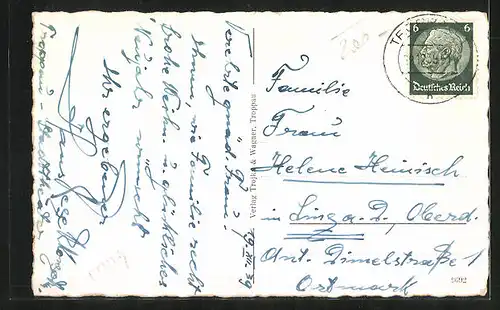 Verehrte gnäd. Frau!
19. XII. 39
Ihnen, wie Familie recht
frohe Weihn. u. glückliches
Neujahr wünscht
Ihr ergebener
Hans
Troppau - Stadttheater
Verlag Trojka & Wagner, Troppau
6 6
Deutsches Reich
Familie
Frau
Helene Heinisch
in Linz a. D., Oberd.
Ant. Dimelstraße 1
Ostmark